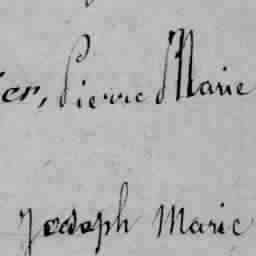 er, Pierre Marie
Joseph Marie